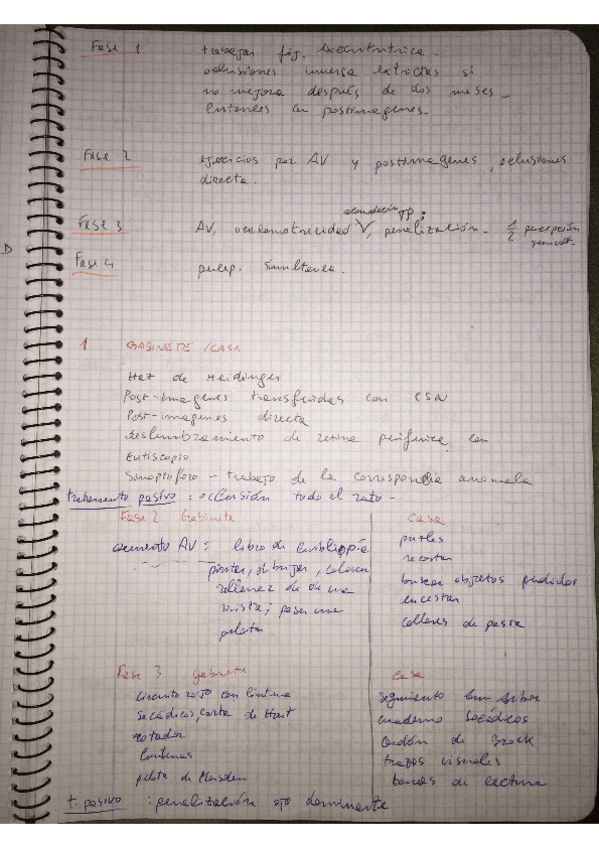 Fase 1 trabajar fij. excentrica.
oclusiones inversa estrictas si
no mejora después de dos meses.
Entonces con postimagenes.
Fase 2 ejercicios por AV y postimagenes, oclusiones
directa.
acomodación TP;
Fase 3 AV, oculomotricidad V, penalización. 1/2 percepción
simult.
D
Fase 4 percep. simultanea.
1 GABINETE / CASA
Haz de Heidinger
Post-imagenes transferidas con ESN
Post-imagenes directa
deslumbramiento de retina periferica con
Eutiscopio
Sinoptoforo - trabajo de la correspondia anomala
tratamiento pasivo : oclusión todo el rato -
Fase 2 Gabinete casa
aumento AV : libro de ambliopía puzles
pintar, dibujar, colorear recortar
rellenar de de una buscar objetos perdidos
revista; pasar una encestar
pelota collares de pasta
Fase 3 gabinete casa
circuito rojo con linterna seguimiento
Sacádicos, carta de Hart cuaderno Sacádicos
rotador Cordón de Brock
linternas trazos visuales
pelota de Marsden barras de lectura
t. pasivo : penalización ojo dominante